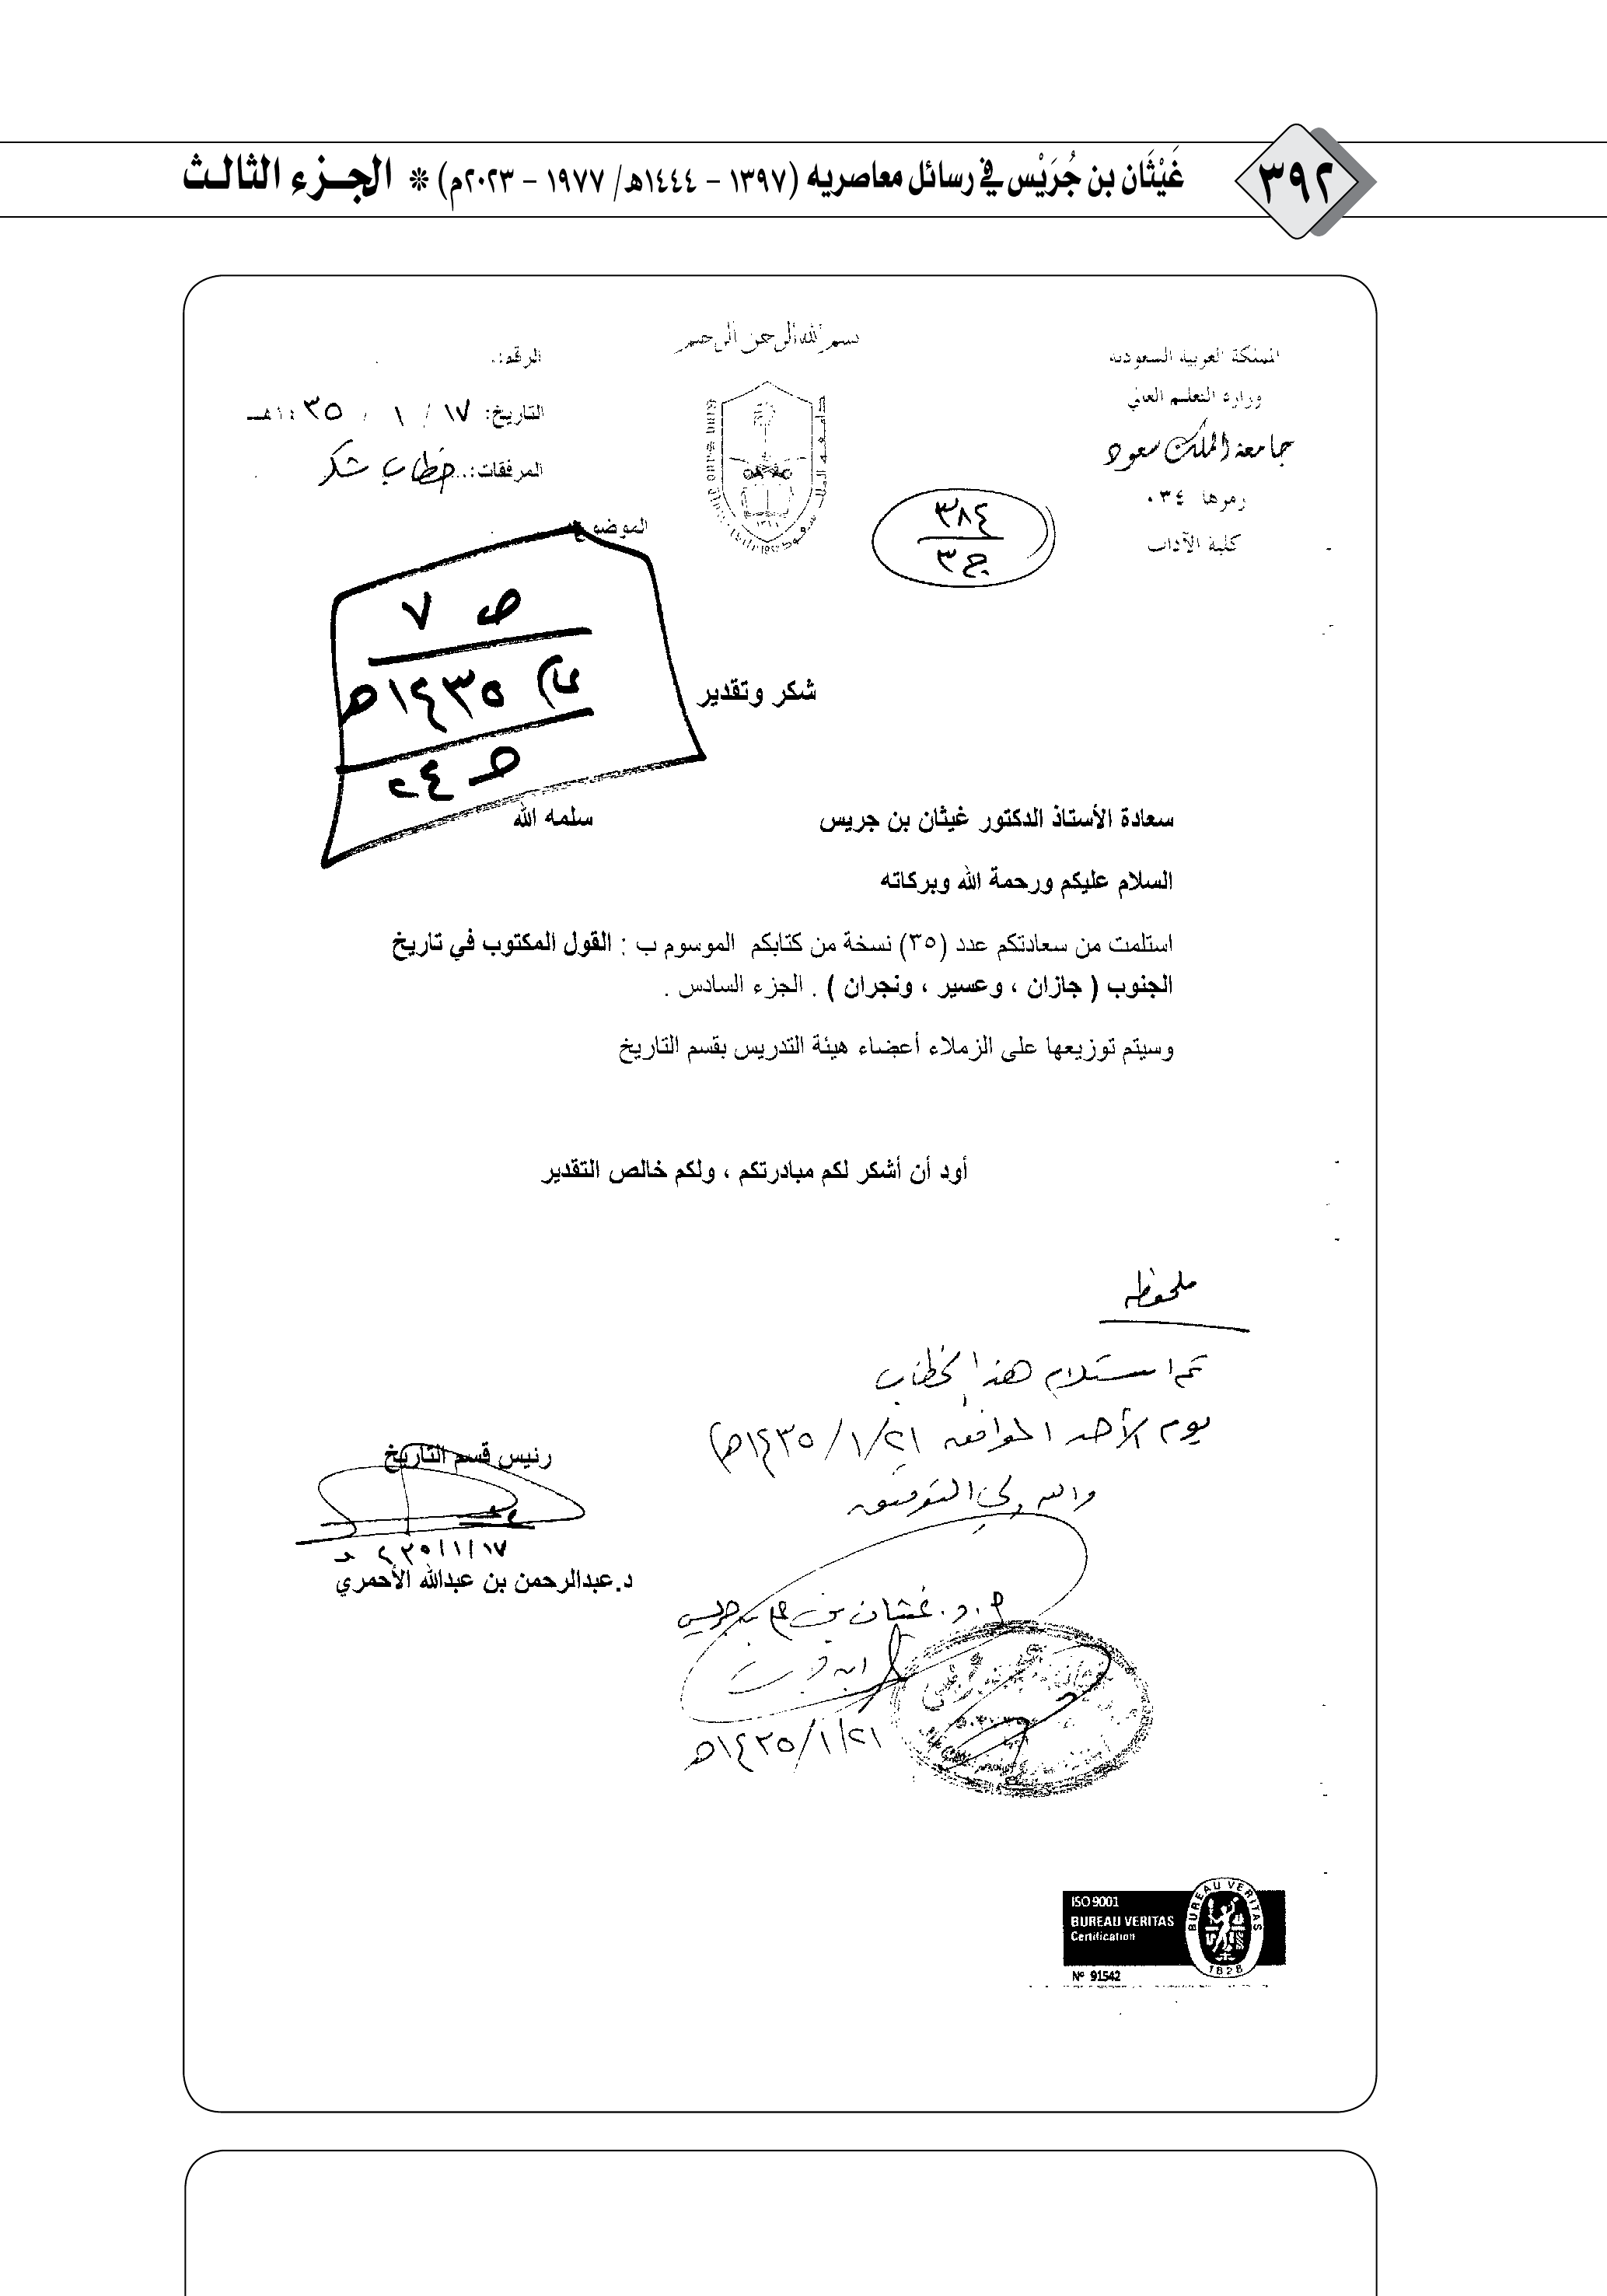 ٣٩٢
غَيْثَان بن جُرَيْس في رسائل معاصريه (١٣٩٧ – ١٤٤٤هـ/ ١٩٧٧ – ٢٠٢٣م) * الجزء الثالث
بسم الله الرحمن الرحيم
المملكة العربية السعودية
وزارة التعليم العالي
جامعة الملك سعود
رمزها ٠٣٤
كلية الآداب
الرقم:
التاريخ: ١٧ / ١ / ١٤٣٥هـ
المرفقات: خطاب شكر
الموضوع
٣٨٤
ج ٣
ص ٧
عام ١٤٣٥هـ
ص ٤٢
شكر وتقدير
سعادة الأستاذ الدكتور غيثان بن جريس سلمه الله
السلام عليكم ورحمة الله وبركاته
استلمت من سعادتكم عدد (٣٥) نسخة من كتابكم الموسوم ب : القول المكتوب في تاريخ
الجنوب ( جازان ، وعسير ، ونجران ) . الجزء السادس .
وسيتم توزيعها على الزملاء أعضاء هيئة التدريس بقسم التاريخ
أود أن أشكر لكم مبادرتكم ، ولكم خالص التقدير
ملحوظه
تم استلام هذا الخطاب
يوم الأحد الموافق ١٤٣٥/١/٢١هـ
والله ولي التوفيق
أ.د. غيثان بن علي بن جريس
١٤٣٥/١/٢١هـ
رئيس قسم التاريخ
د.عبدالرحمن بن عبدالله الأحمري
ISO 9001
BUREAU VERITAS
Certification
Nº 91542
BUREAU VERITAS
1828